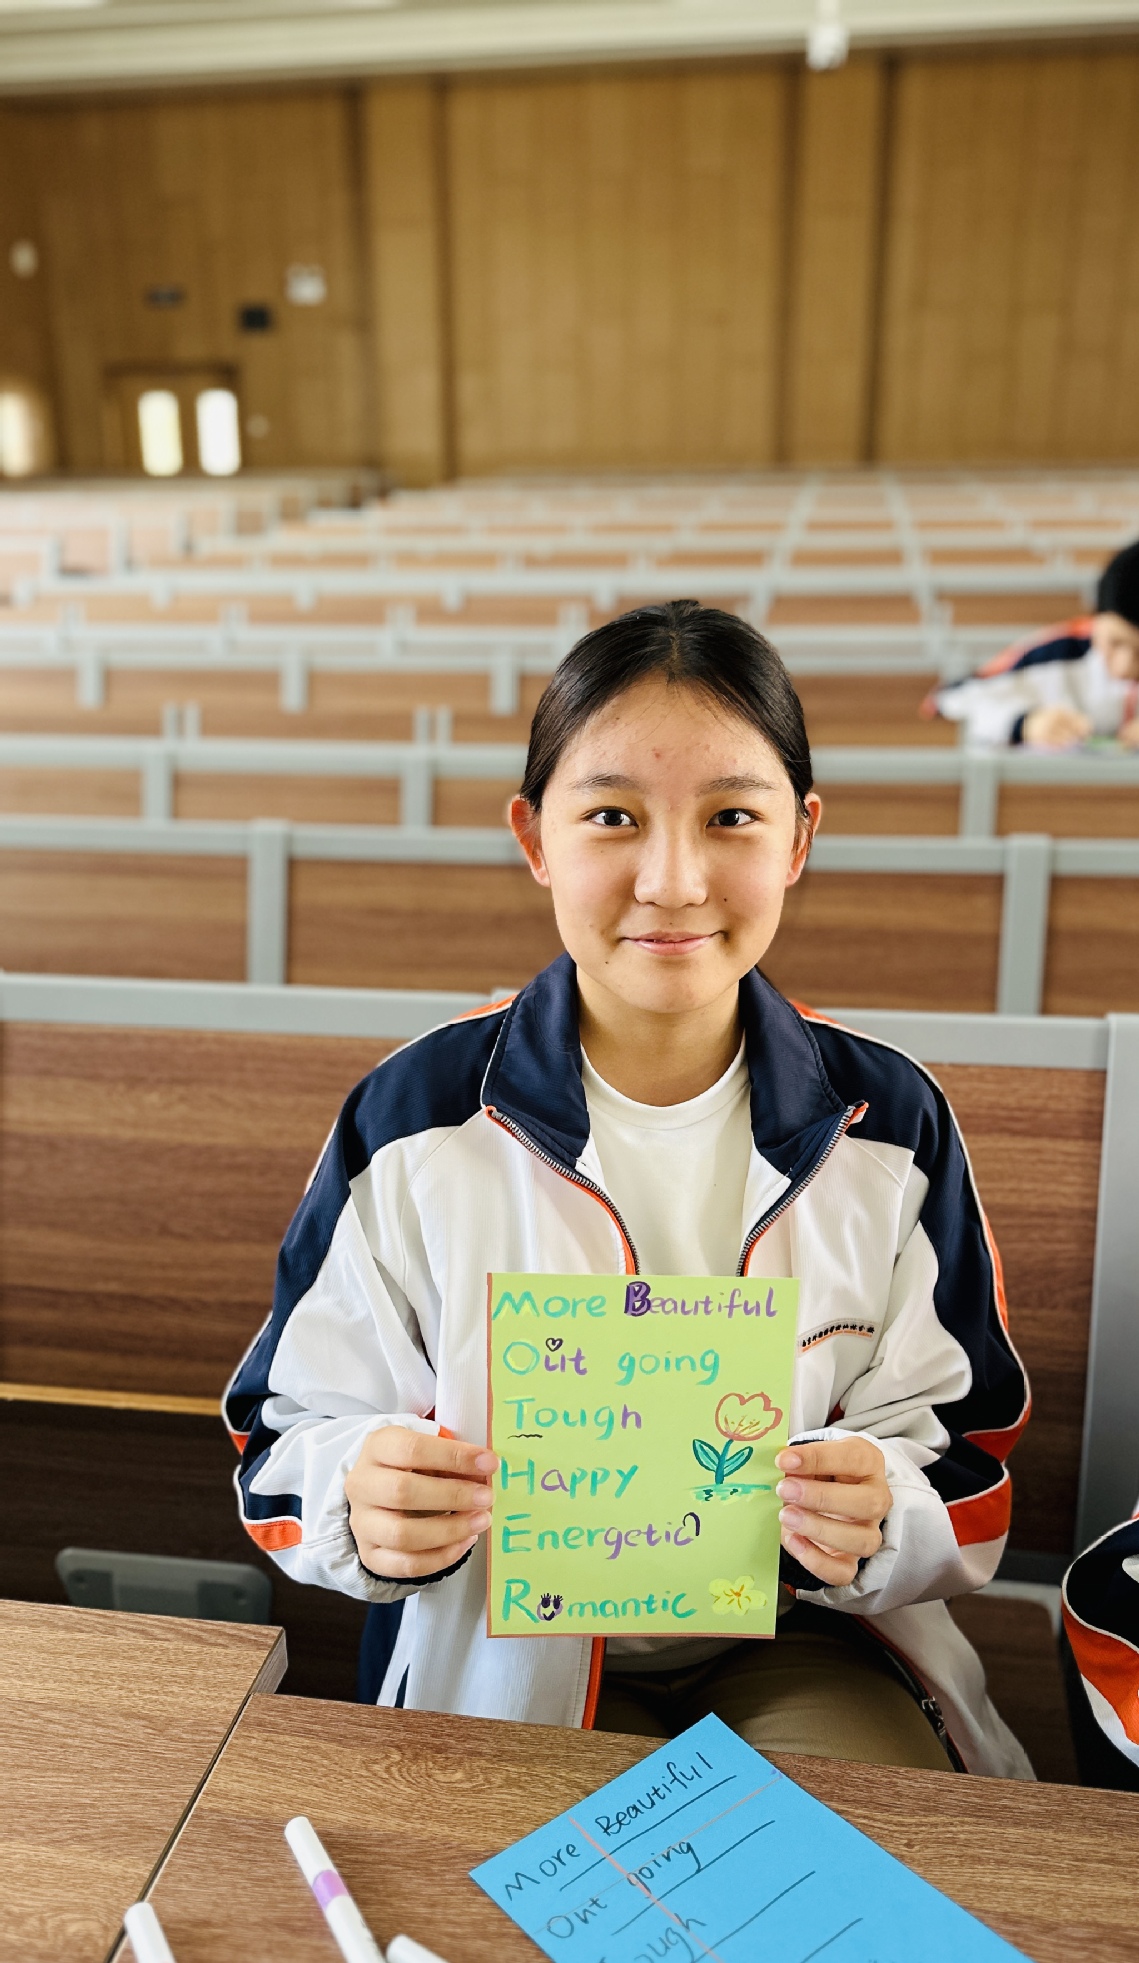 More Beautiful
Out going
Tough
Happy
Energetic
Romantic
More Beautiful
Out going
ough